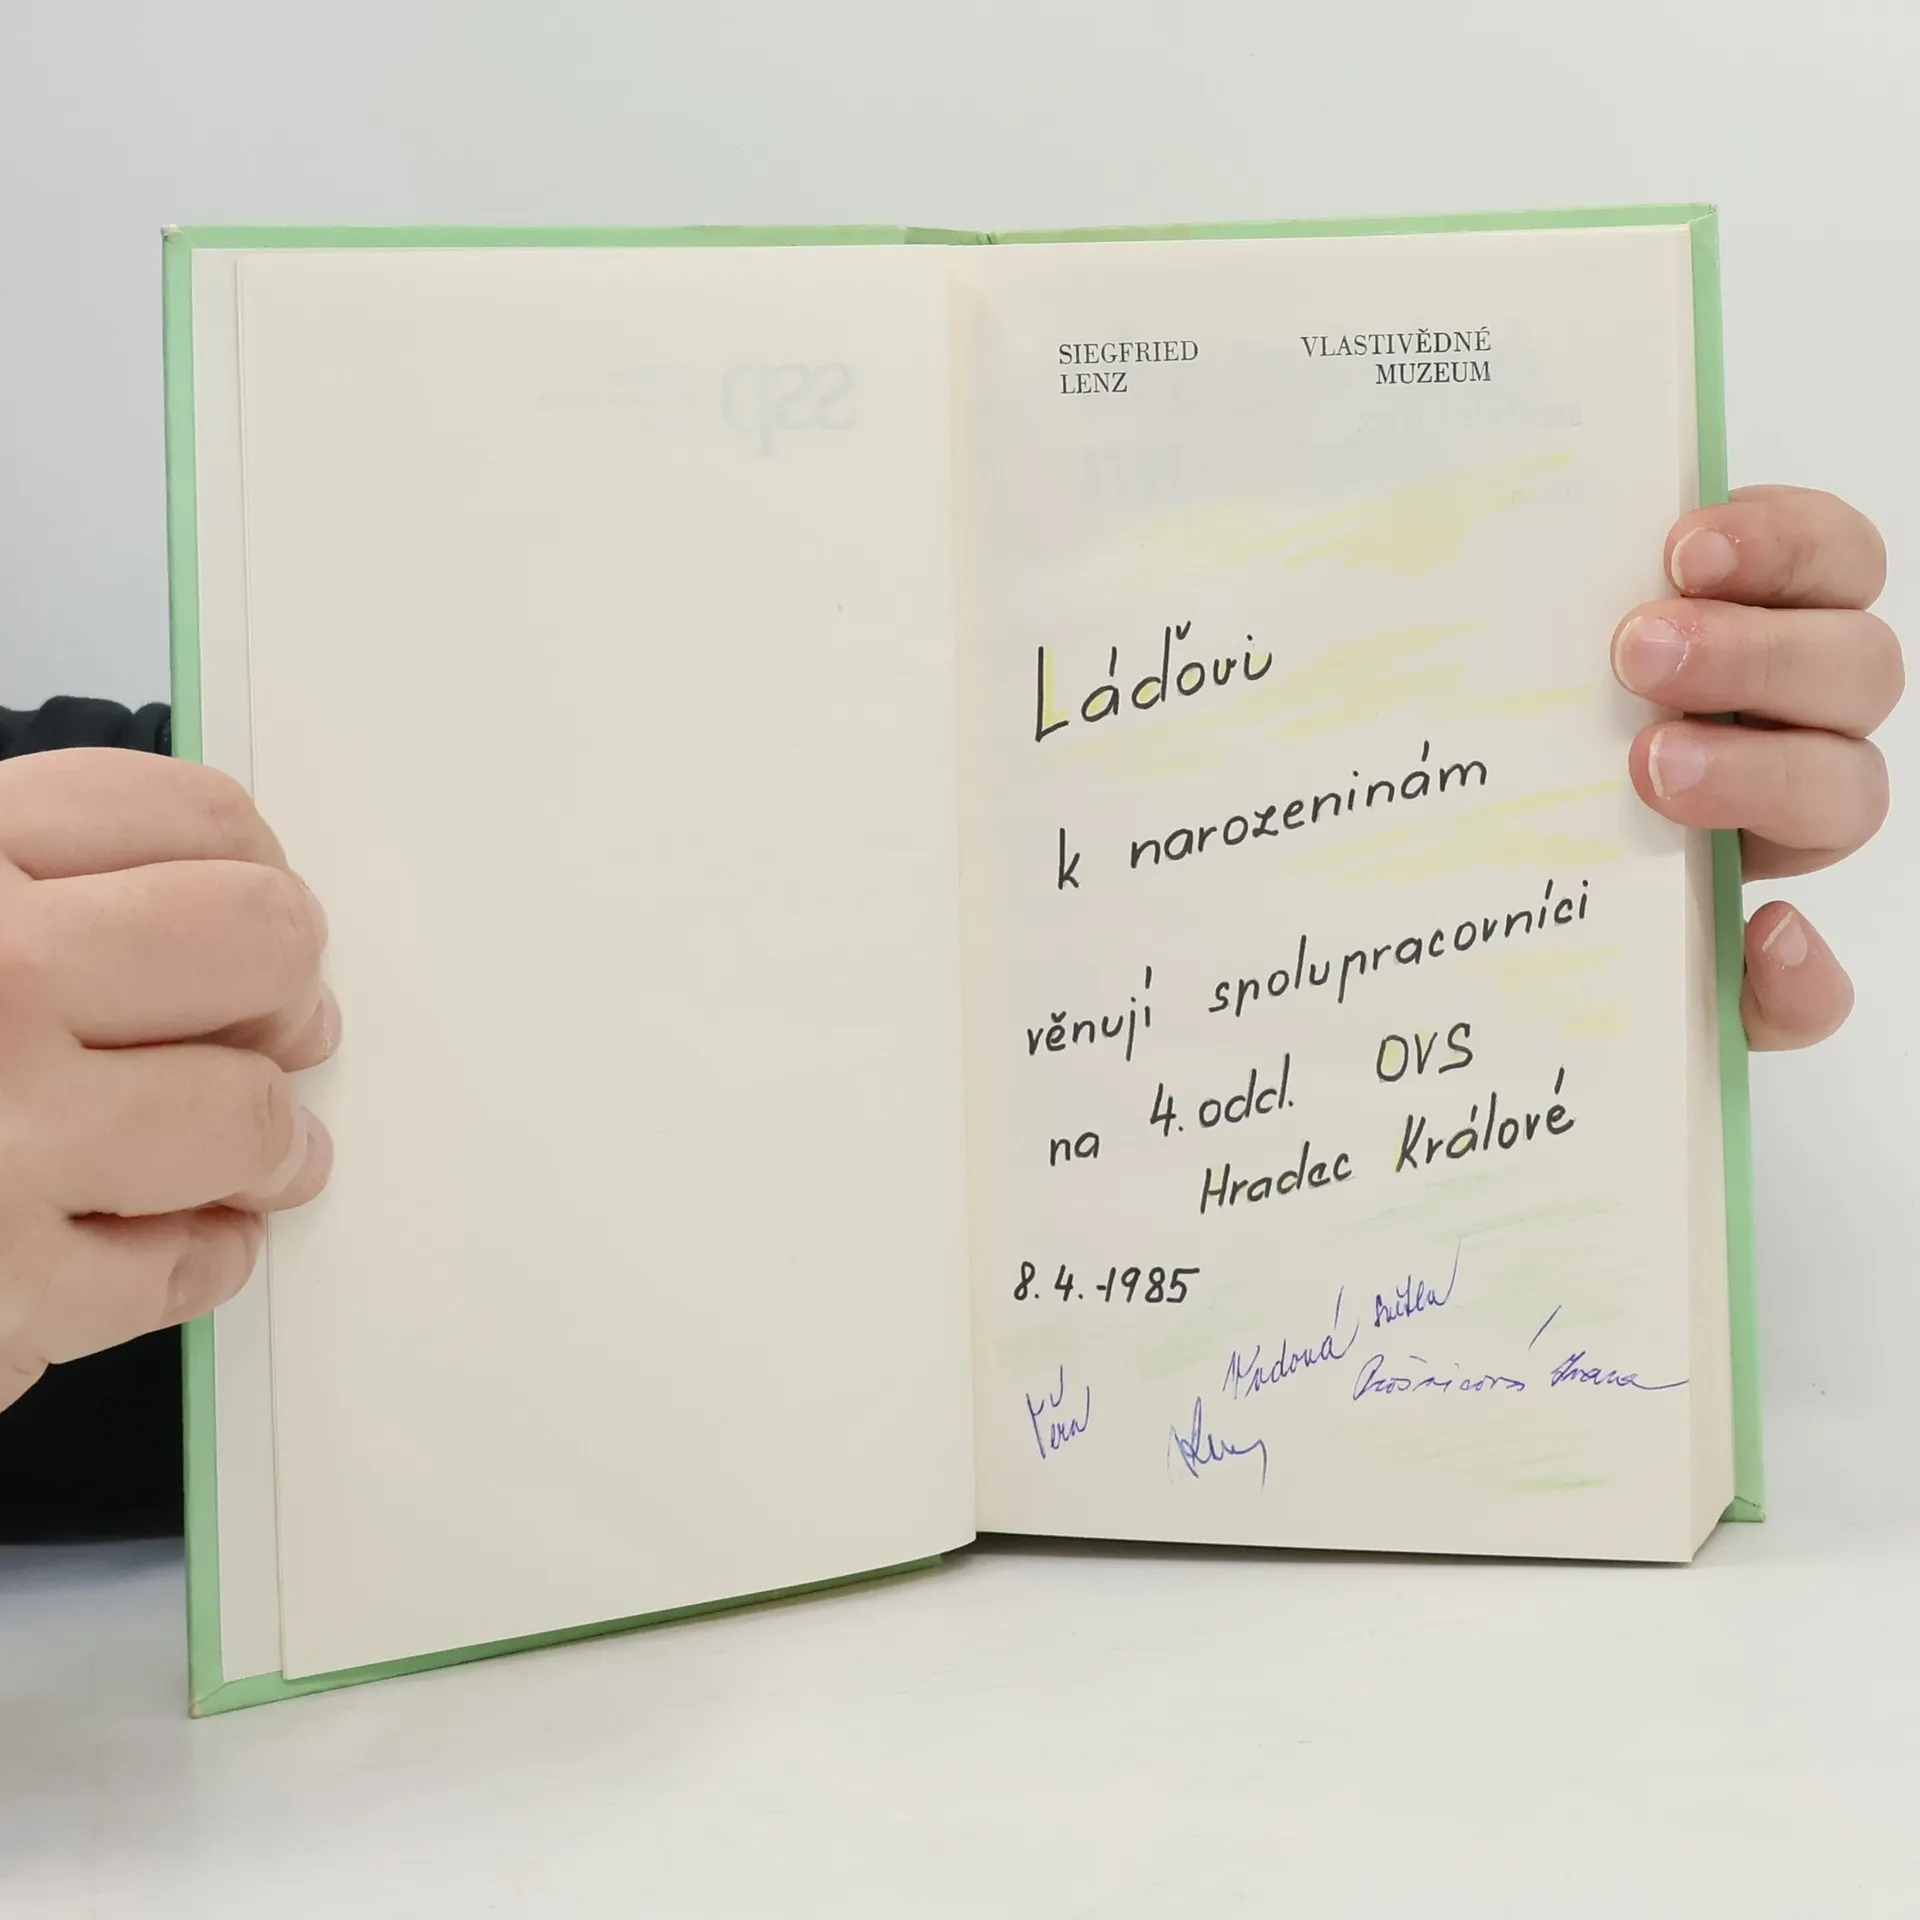 SIEGFRIED
LENZ
VLASTIVĚDNÉ
MUZEUM
Láďovi
k narozeninám
věnují spolupracovníci
na 4. odd. OVS
Hradec Králové
8.4.-1985
Světla
Věra